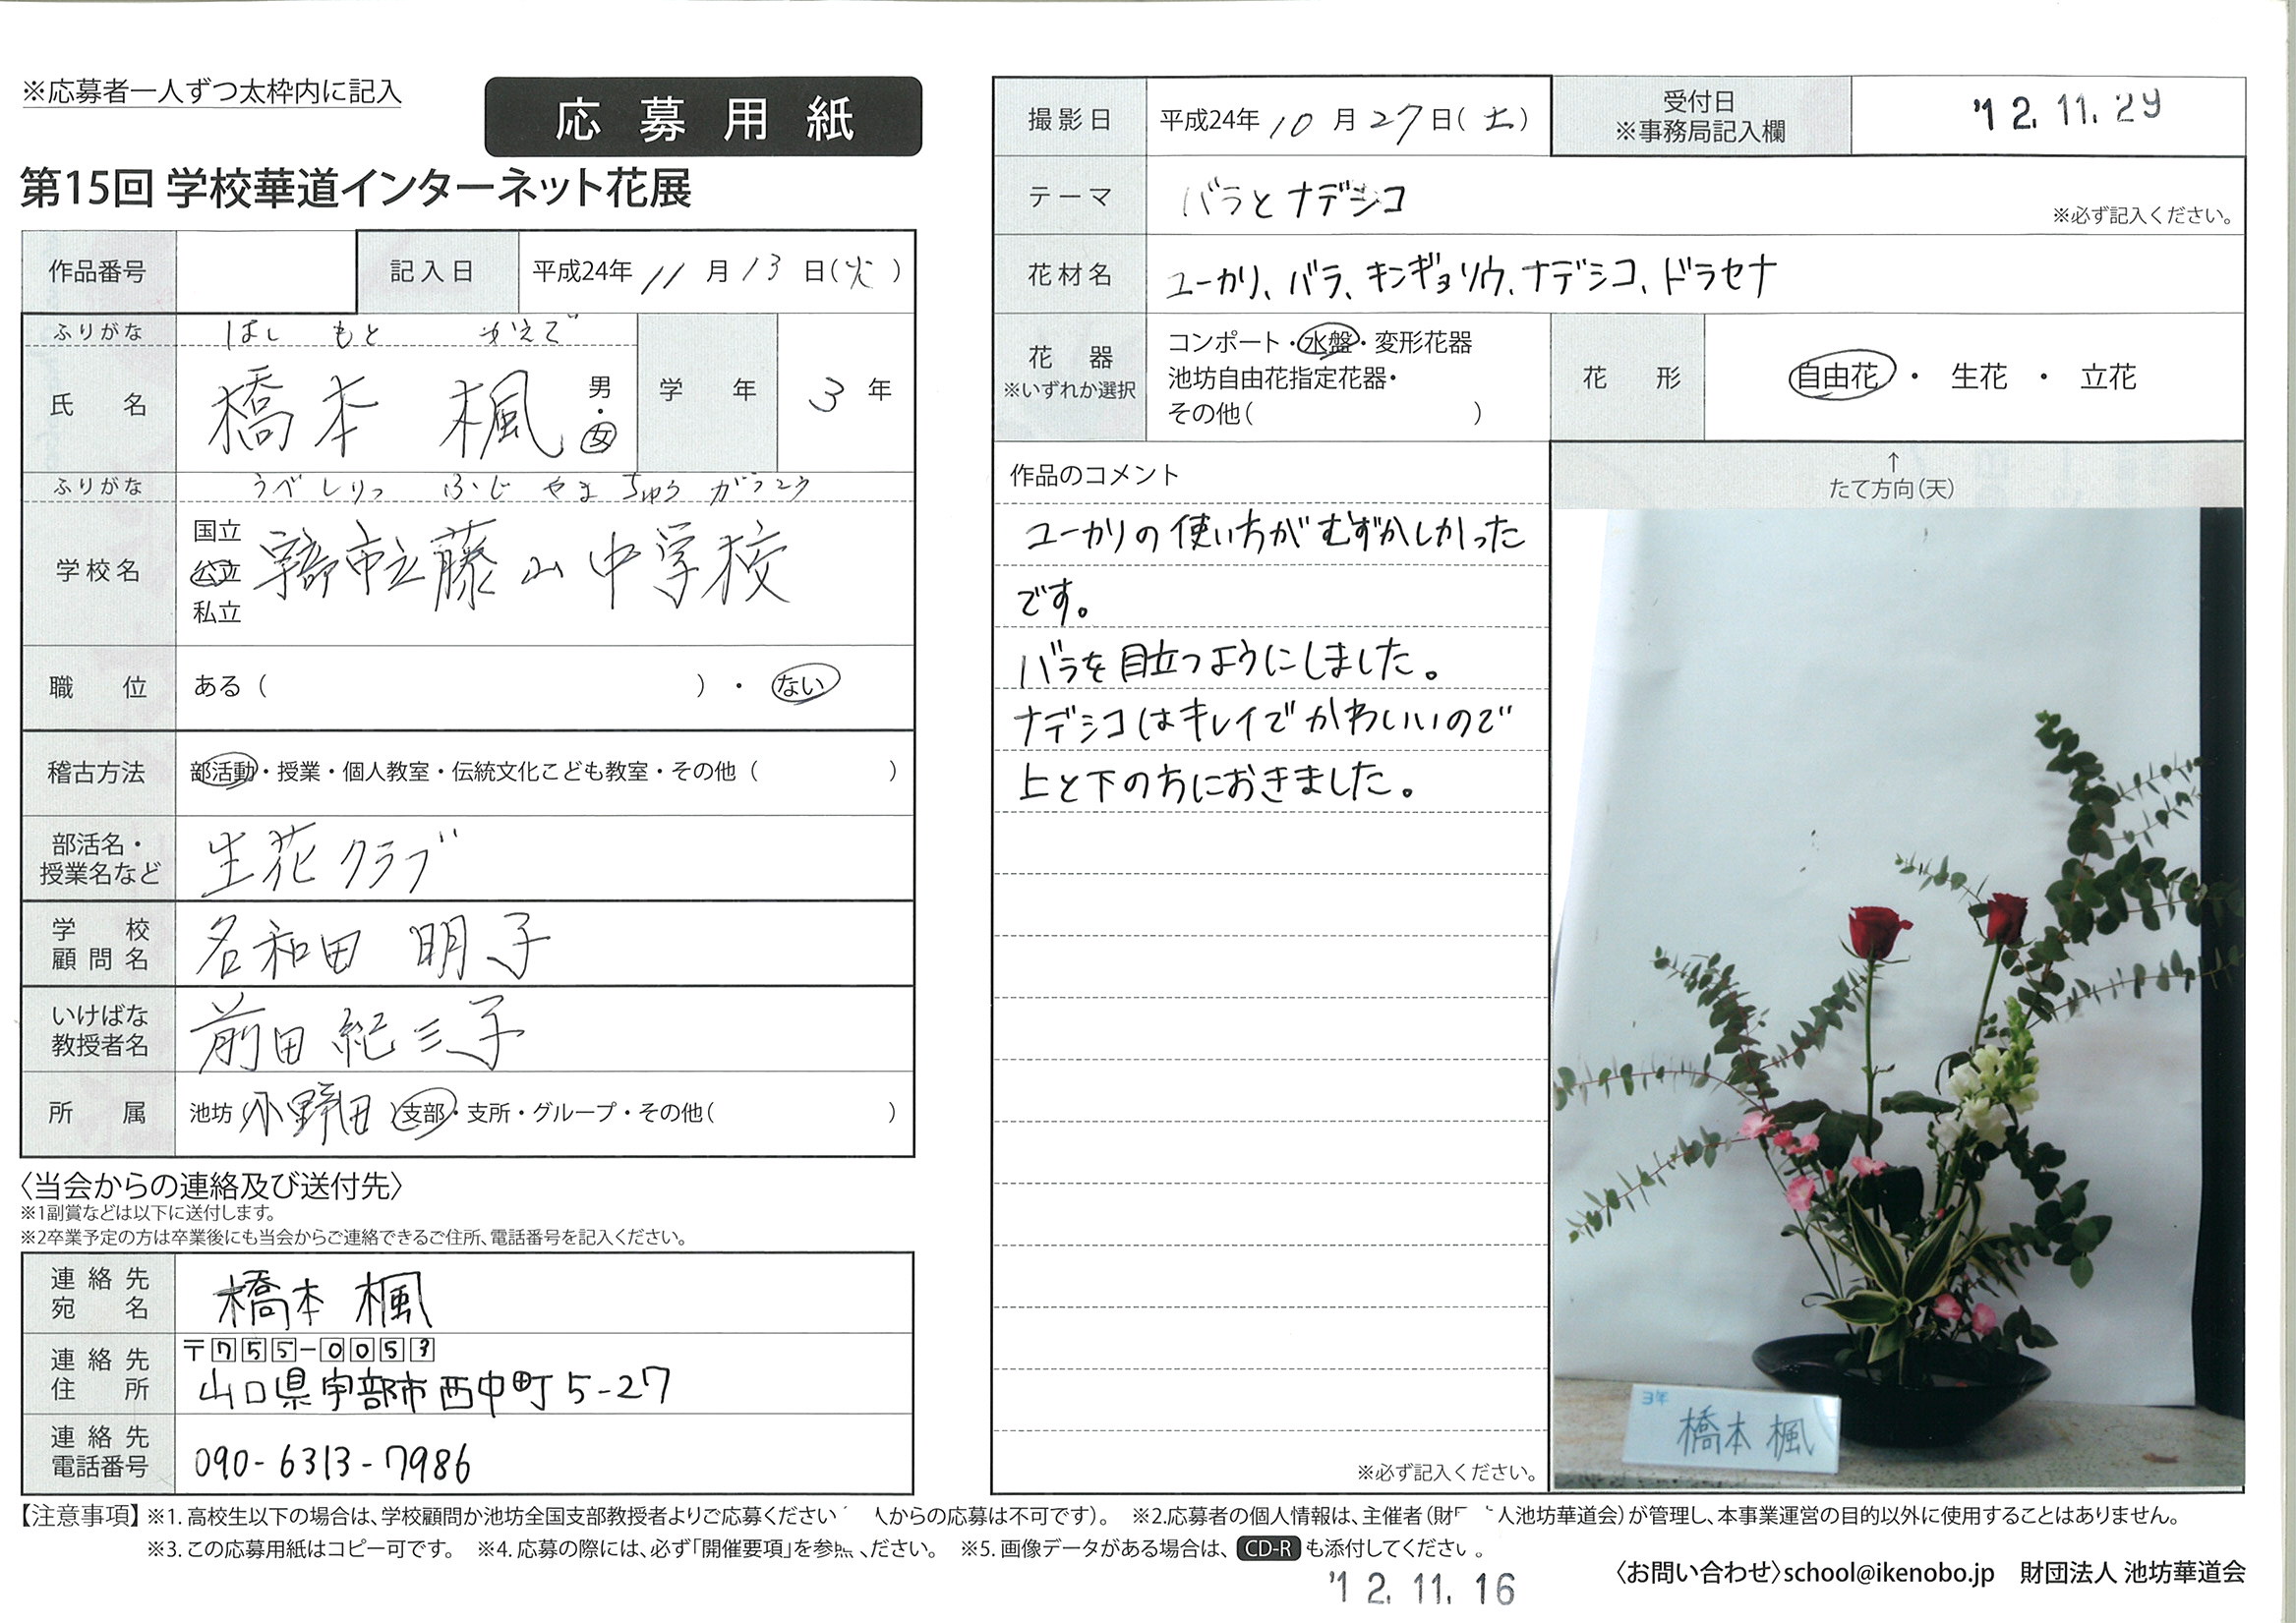 ※応募者一人ずつ太枠内に記入
応募用紙
第15回 学校華道インターネット花展
作品番号
記入日 平成24年 11 月 13 日(火)
ふりがな はし もと かえで
氏名 橋本 楓 男・女
学年 3 年
ふりがな うべしりつ ふじ やま ちゅう がっこう
学校名 国立 公立 私立 宇部市立藤山中学校
職位 ある( )・ない
稽古方法 部活動・授業・個人教室・伝統文化こども教室・その他( )
部活名・授業名など 生花クラブ
学校顧問名 名和田 明子
いけばな教授者名 前田 紀三子
所属 池坊(小野田)支部・支所・グループ・その他( )
〈当会からの連絡及び送付先〉
※1副賞などは以下に送付します。
※2卒業予定の方は卒業後にも当会からご連絡できるご住所、電話番号を記入ください。
連絡先宛名 橋本 楓
連絡先住所 〒755-0053
山口県宇部市西中町5-27
連絡先電話番号 090-6313-7986
撮影日 平成24年 10 月 27 日(土)
受付日 ※事務局記入欄 '12.11.29
テーマ バラとナデシコ ※必ず記入ください。
花材名 ユーカリ、バラ、キンギョソウ、ナデシコ、ドラセナ
花器 ※いずれか選択
コンポート・水盤・変形花器
池坊自由花指定花器・
その他( )
花形 自由花・生花・立花
作品のコメント
ユーカリの使い方がむずかしかった
です。
バラを目立つようにしました。
ナデシコはキレイでかわいいので
上と下の方におきました。
※必ず記入ください。
↑
たて方向(天)
3年
橋本 楓
【注意事項】※1. 高校生以下の場合は、学校顧問か池坊全国支部教授者よりご応募ください 人からの応募は不可です)。 ※2.応募者の個人情報は、主催者(財 人池坊華道会)が管理し、本事業運営の目的以外に使用することはありません。
※3. この応募用紙はコピー可です。 ※4. 応募の際には、必ず「開催要項」を参 ください。 ※5. 画像データがある場合は、CD-Rも添付してください。
'12.11.16
〈お問い合わせ〉school@ikenobo.jp 財団法人 池坊華道会